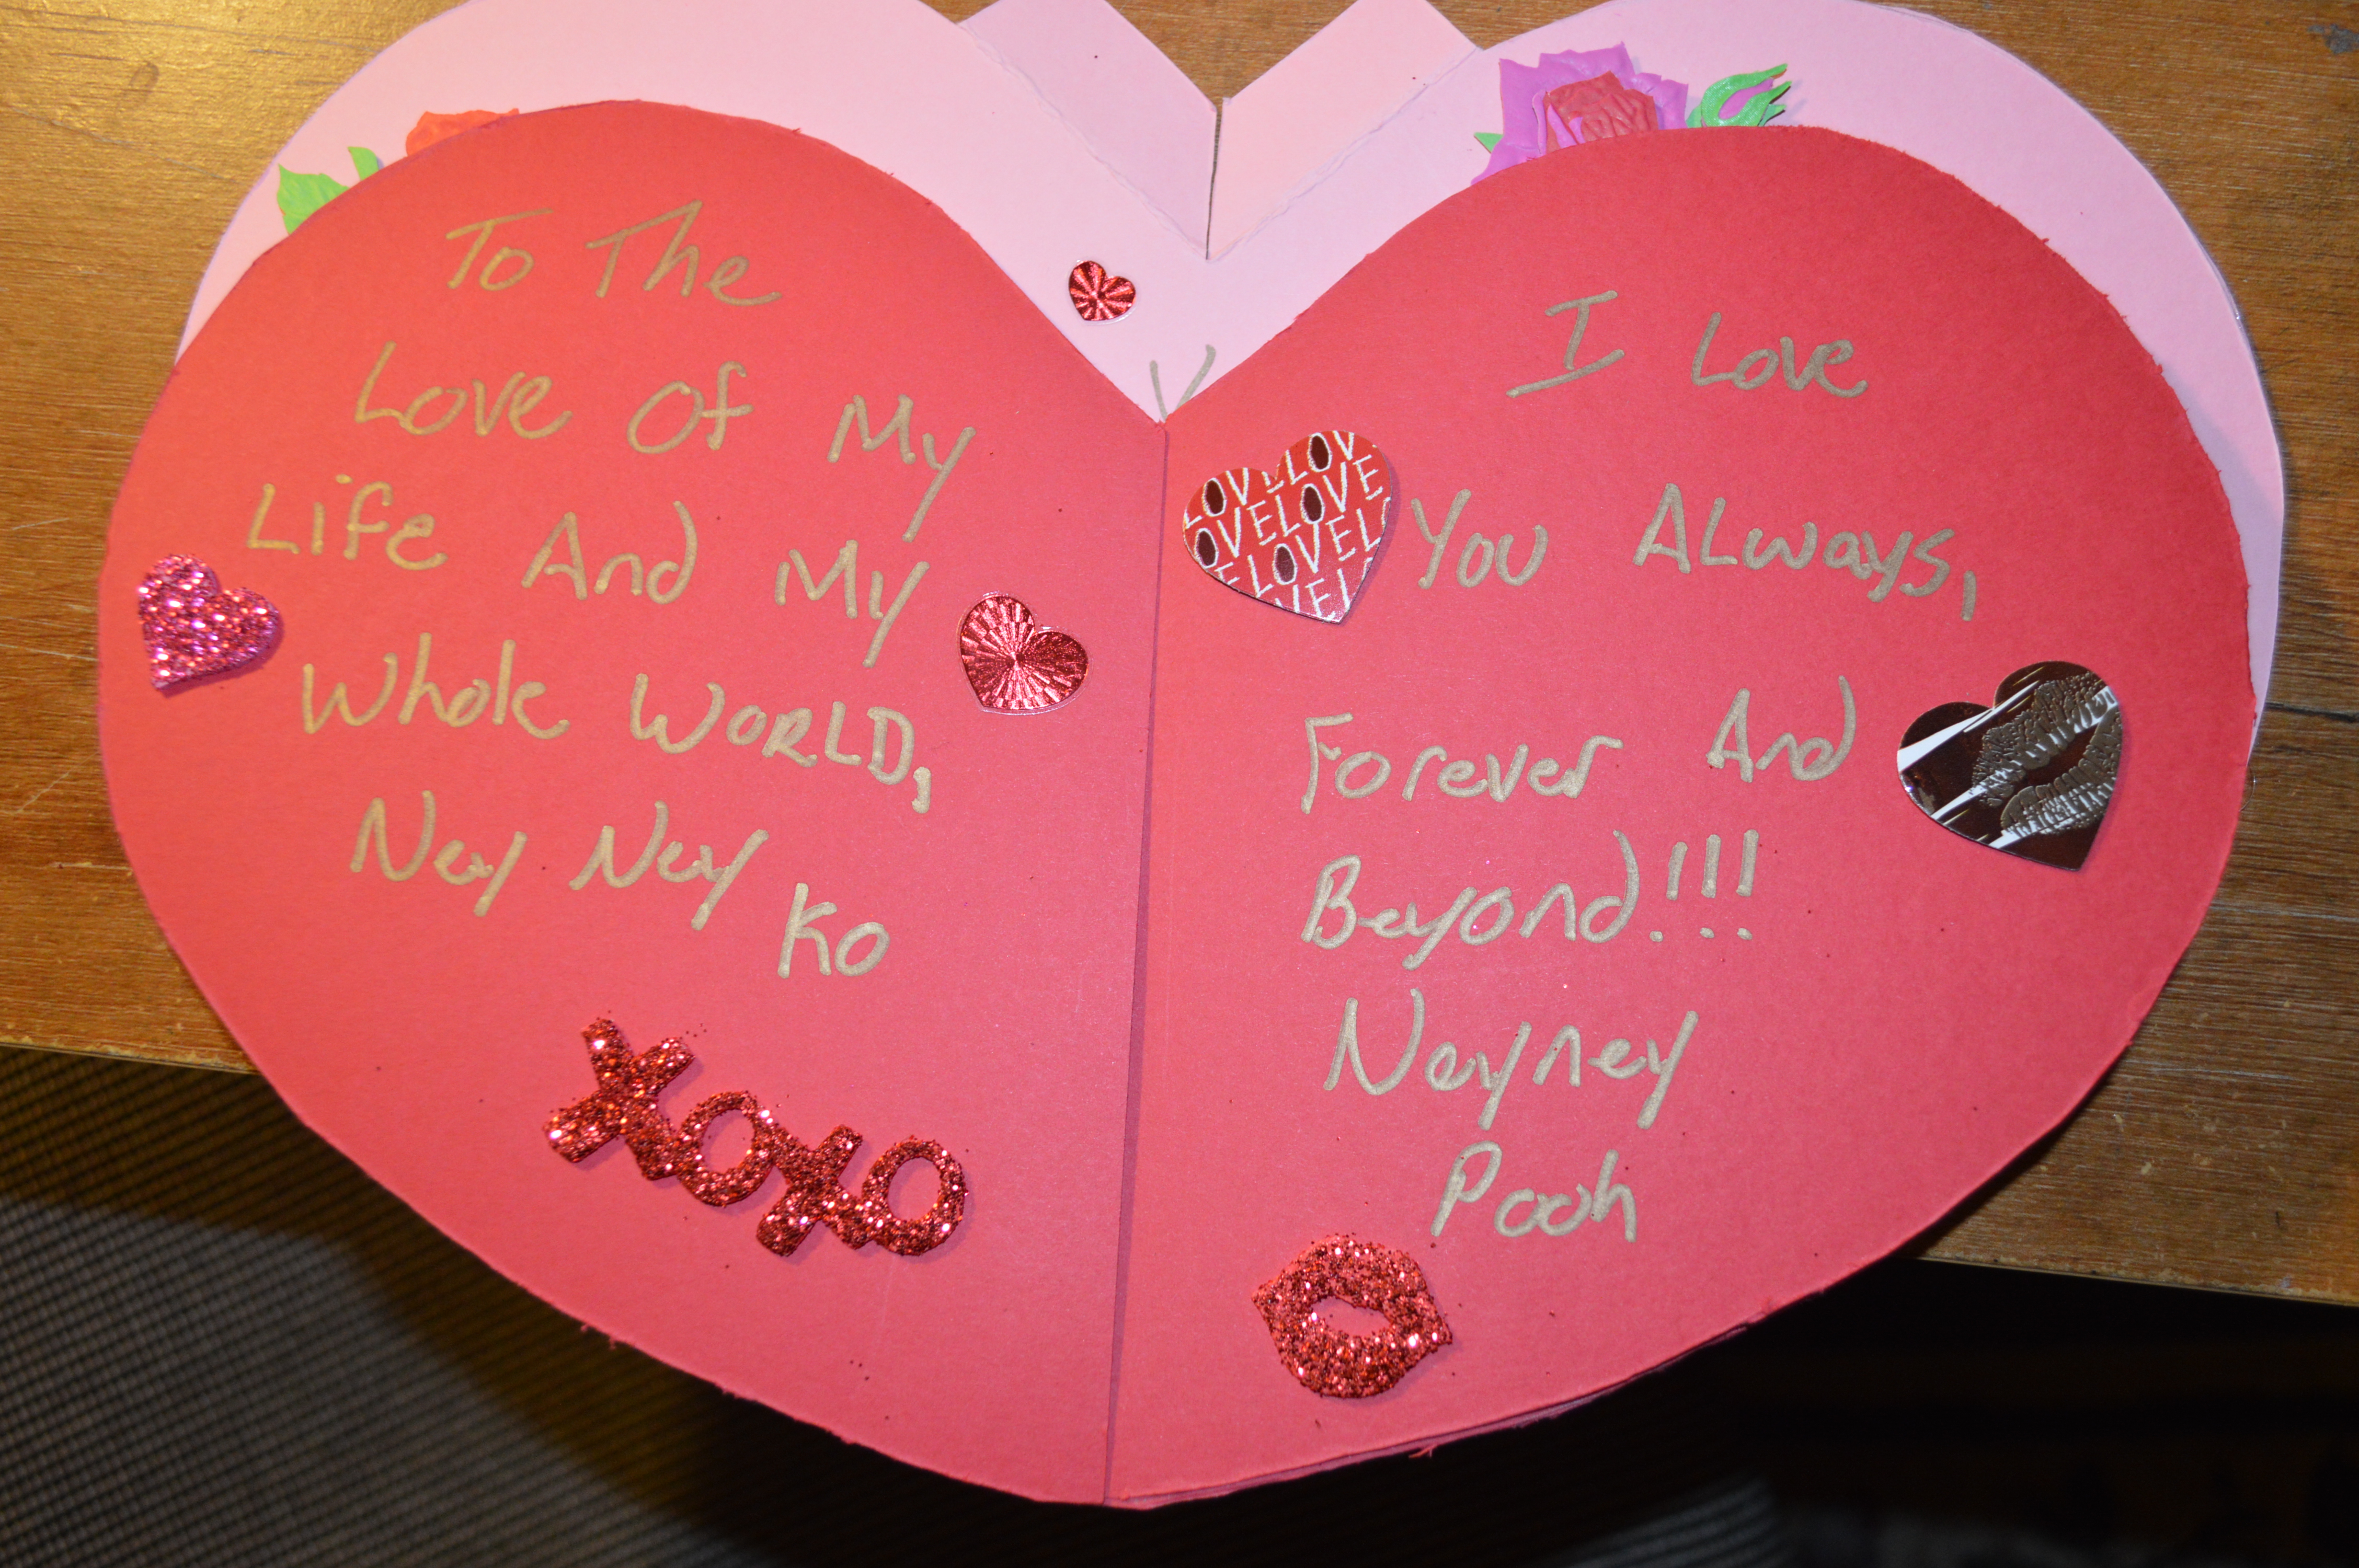 To The
Love Of My
Life And My
Whole WORLD,
Ney Ney
Ko
xoxo
I Love
You ALways,
Forever And
Beyond!!!
Neyney
Pooh
LOVE LOV
OVELOVE
LOVEL
VEL